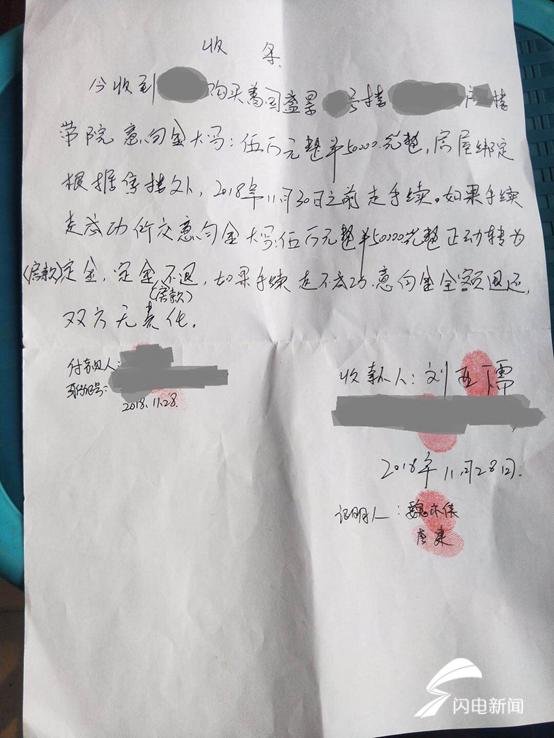 收 条
今收到 购买 号楼 楼
带院意向金大写:伍万元整￥50000.元整,房屋绑定
根据 2018年11月30日之前走手续。如果手续
走成功所交意向金大写:伍万元整￥50000元整正动转为
(房款)定金,定金不退,如果手续走不成功,意向金全额退还,
(房款)
双方无责任.
付款人:
2018.11.28.
收款人:刘
2018年11月28日.
证明人:魏
闪电新闻